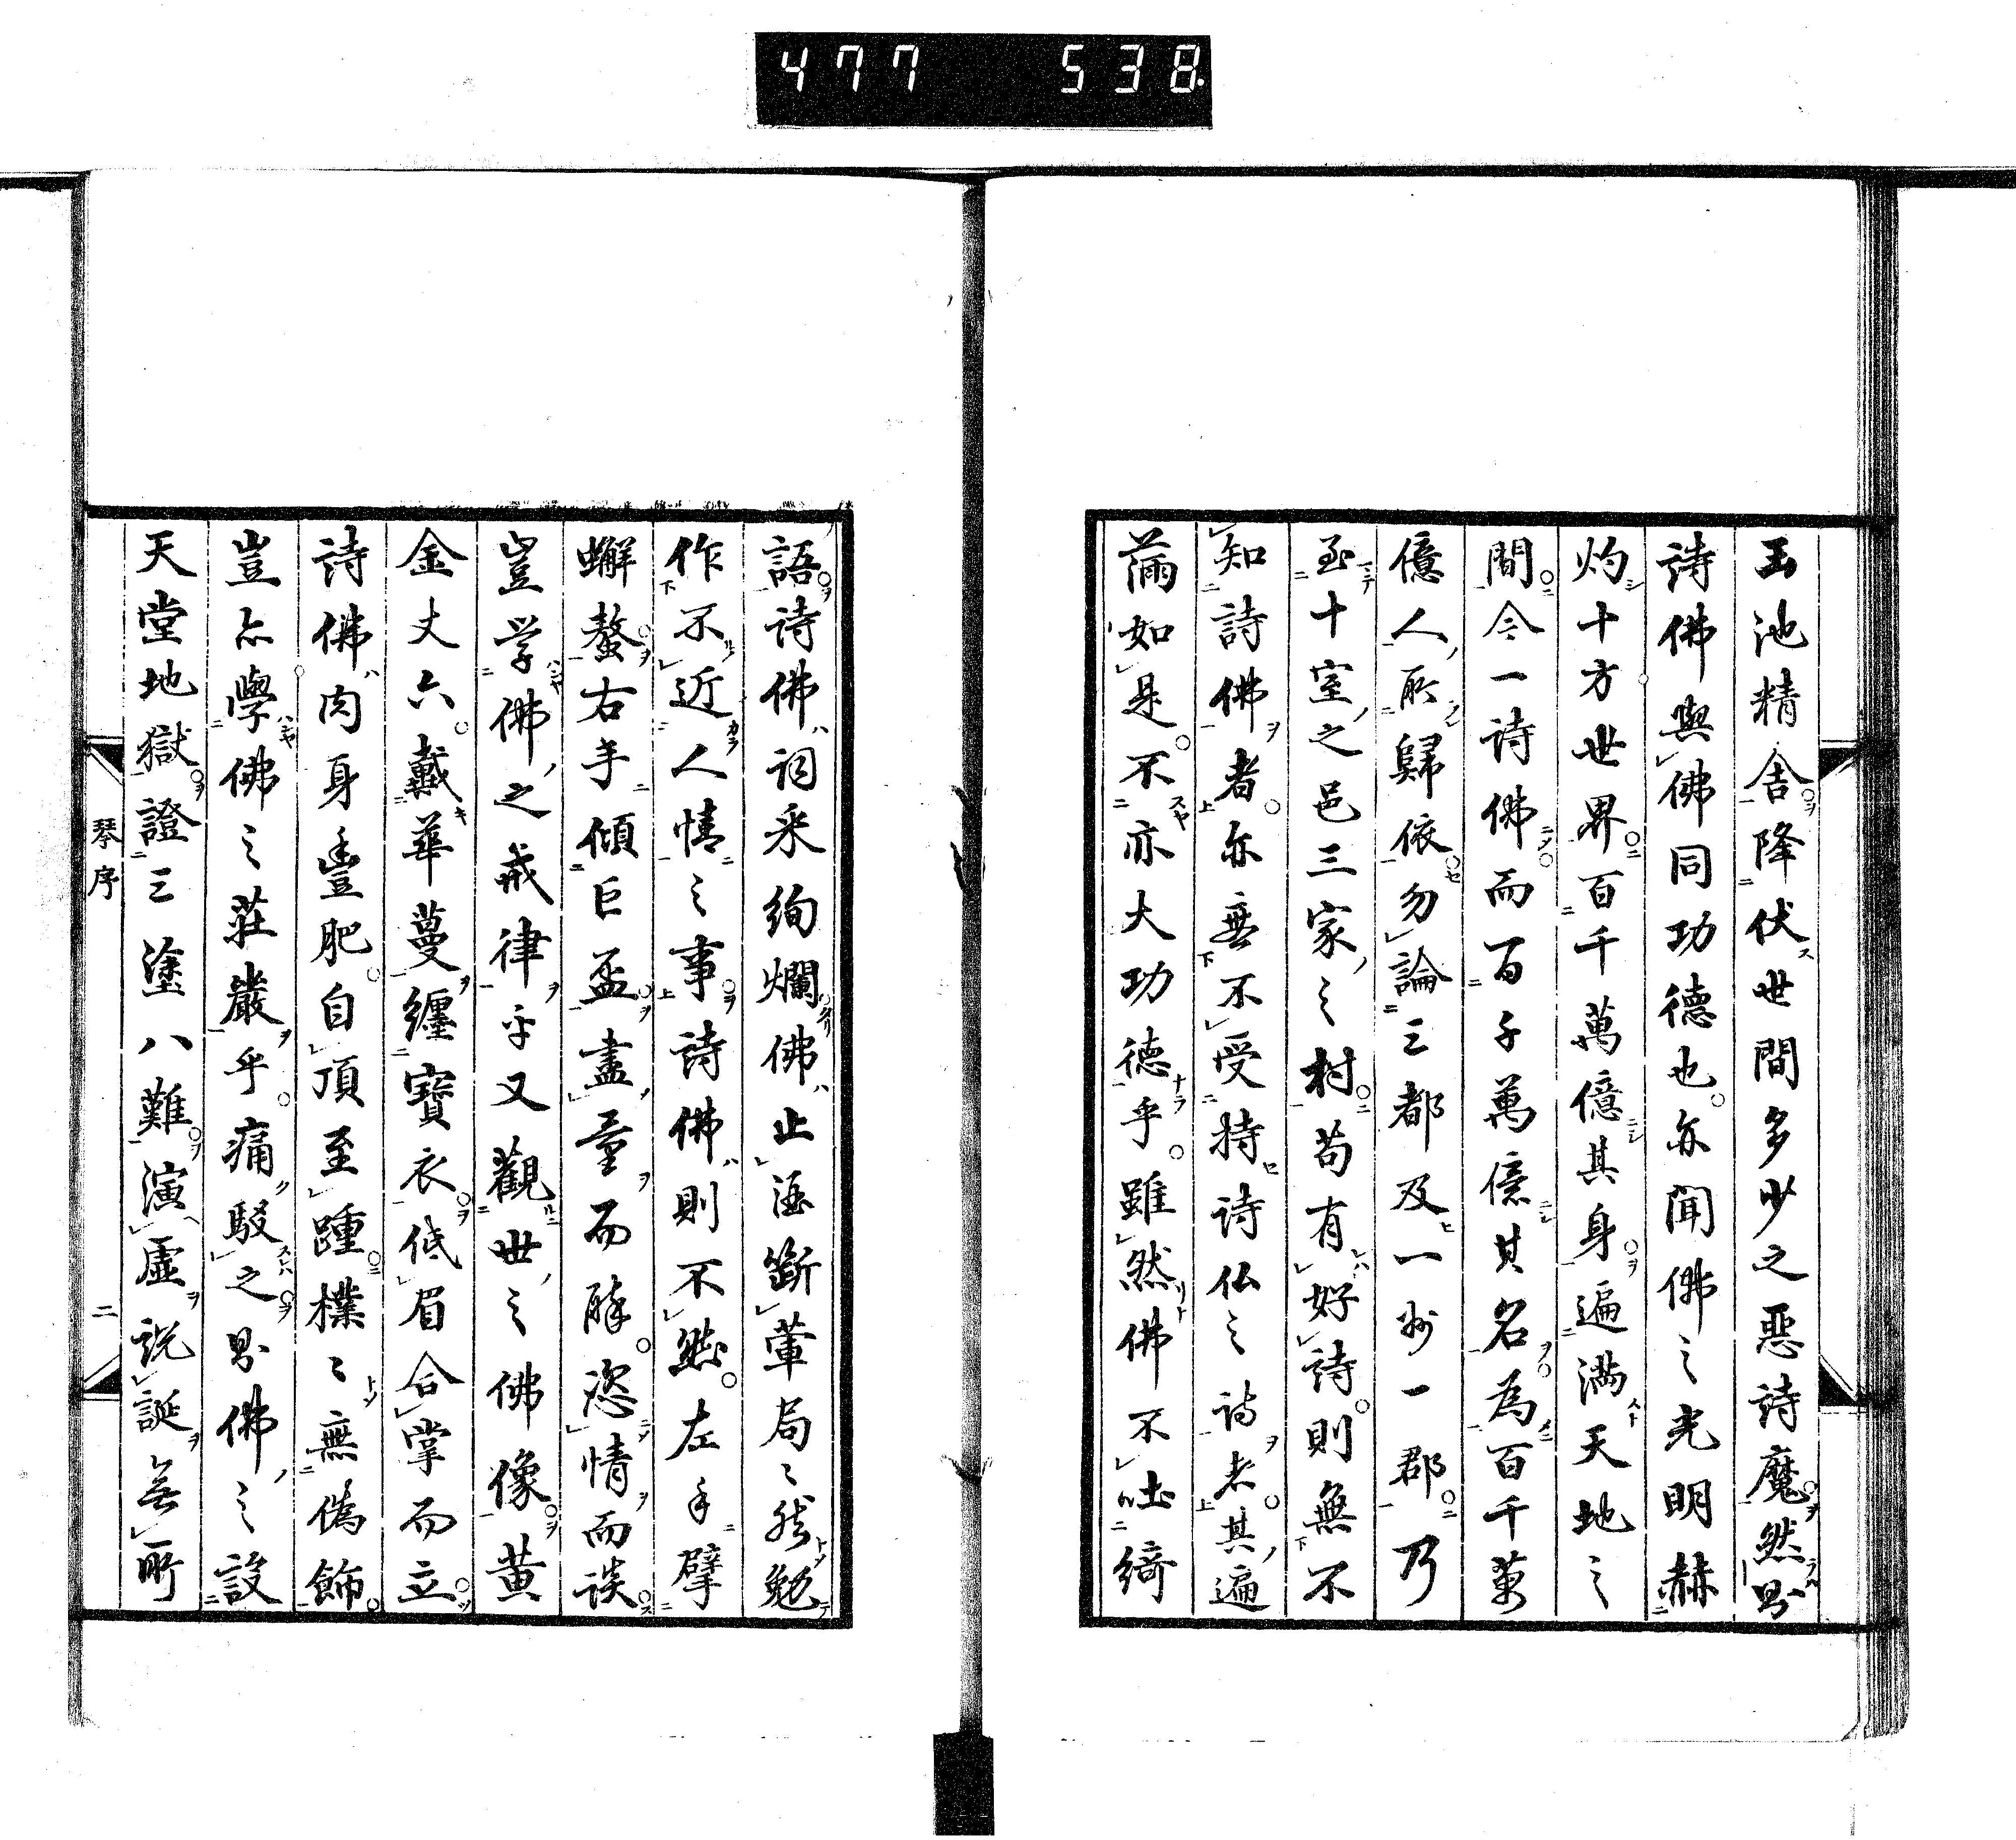 477 538
玉池精舎降伏世間多少之惡詩魔然則
詩佛與佛同功德也亦聞佛之光明赫
灼十方世界百千萬億其身遍滿天地之
間今一詩佛而百千萬億其名為百千萬
億人所歸依勿論三都及一州一郡乃
至十室之邑三家之村苟有好詩則無不
知詩佛者亦無不受持詩仏之詩者其遍
滿如是不亦大功德乎雖然佛不吐綺
語詩佛詞采絢爛佛止酒斷葷局々然勉
作不近人情之事詩佛則不然左手擘
蟹螯右手傾巨盃盡量而醉恣情而談
豈学佛之戒律乎又觀世之佛像黄
金丈六戴華蔓纏寶衣低眉合掌而立
詩佛肉身豊肥自頂至踵樸々無偽飾
豈亦學佛之莊嚴乎痛駁之則佛之設
天堂地獄證三塗八難演虛説誕無所
琴序
二